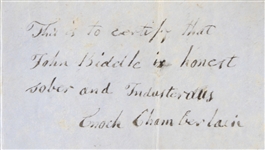 This is to certify that
John Biddle is honest
sober and Industerous
Enoch Chamberlain